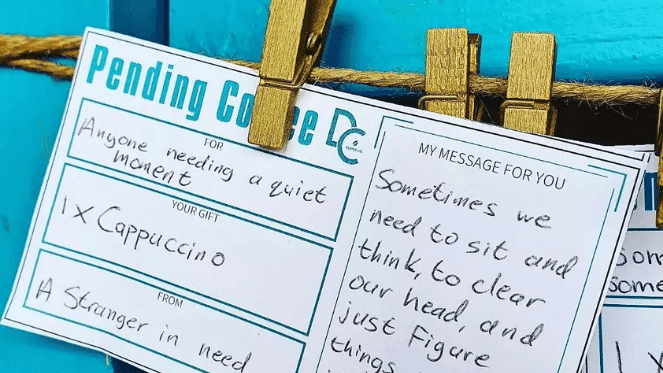 Pending Co ee DC
FOR
Anyone needing a quiet
moment
YOUR GIFT
1 x Cappuccino
FROM
A Stranger in need
MY MESSAGE FOR YOU
Sometimes we
need to sit and
think, to clear
our head, and
just Figure
things